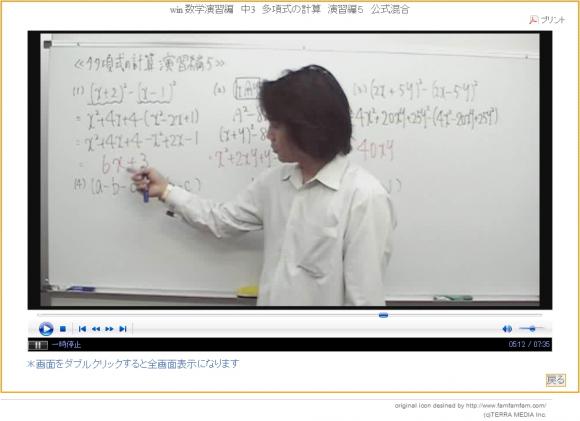 win数学演習編 中3 多項式の計算 演習編5 公式混合
プリント
≪多項式の計算 演習編5≫
(1) (x+2)²-(x-1)²
= x²+4x+4-(x²-2x+1)
= x²+4x+4-x²+2x-1
= 6x+3
(2)
A²-8
(x+y)²-8
= x²+2xy+y²
(3) (2x+5y)²-(2x-5y)²
4x²+20xy+25y²-(4x²-20xy+25y²)
40xy
(4) (a-b-
-c)
一時停止
05:12 / 07:35
*画面をダブルクリックすると全画面表示になります
戻る
original icon desined by http://www.famfamfam.com/
(c)TERRA MEDIA Inc.